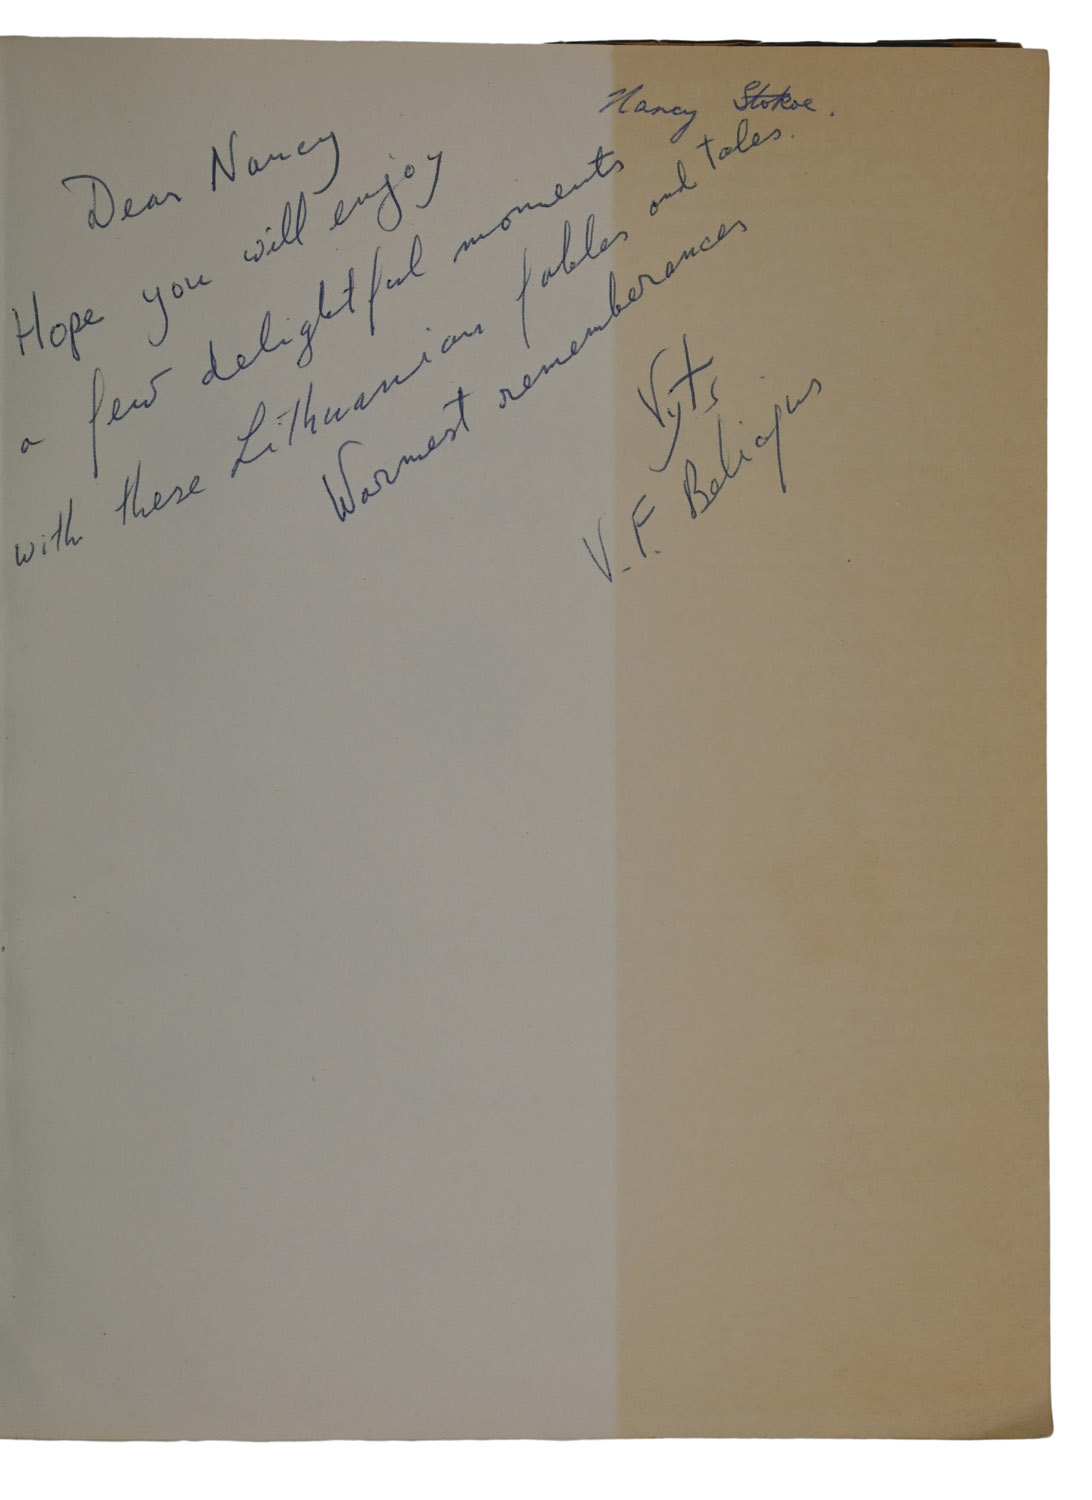 Nancy Stokoe.
Dear Nancy
Hope you will enjoy
a few delightful moments
with these Lithuanian fables and tales.
Warmest rememberances
Vyts
V. F. Beliajus